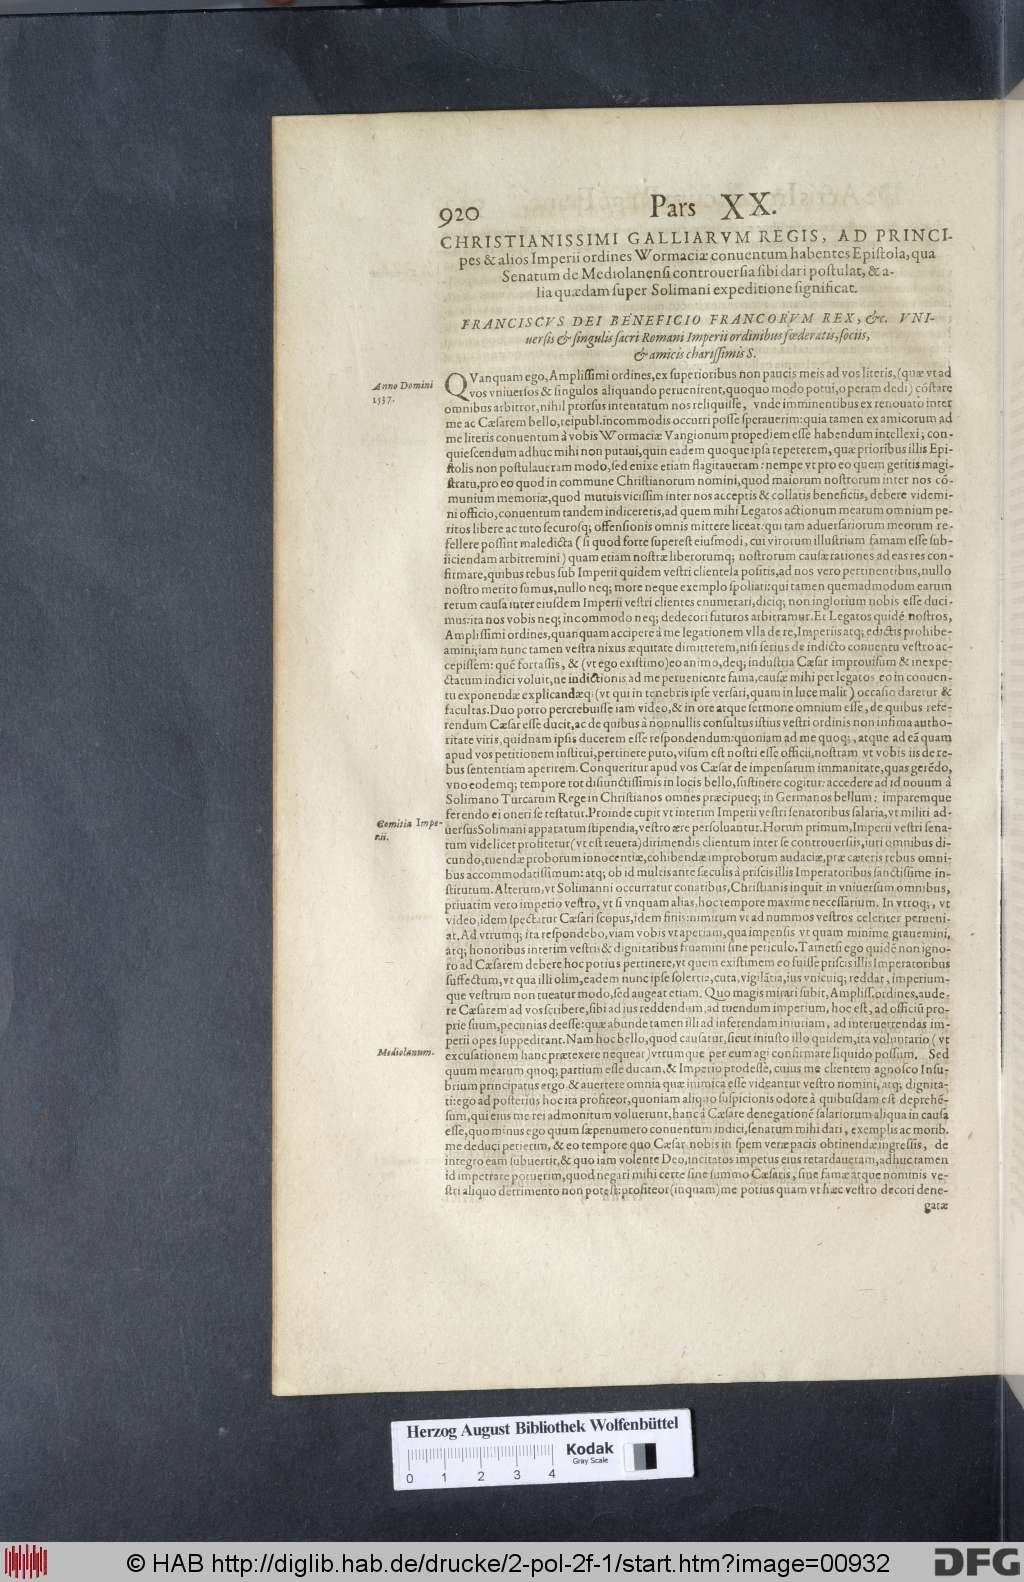 920 Pars XX.
CHRISTIANISSIMI GALLIARVM REGIS, AD PRINCI-
pes & alios Imperii ordines Wormaciæ conuentum habentes Epistola, qua
Senatum de Mediolanensi controuersia sibi dari postulat, & a-
lia quædam super Solimani expeditione significat.
FRANCISCVS DEI BENEFICIO FRANCORVM REX, &c. VNI-
uersis & singulis sacri Romani Imperii ordinibus fœderatis, sociis,
& amicis charissimis S.
Anno Domini
1537.
QVanquam ego, Amplissimi ordines, ex superioribus non paucis meis ad vos literis, (quæ vt ad
vos vniuersos & singulos aliquando peruenirent, quoquo modo potui, operam dedi) cóstare
omnibus arbitror, nihil prorsus intentatum nos reliquisse, vnde imminentibus ex renouato inter
me ac Cæsarem bello, reipubl. incommodis occurri posse sperauerim: quia tamen ex amicorum ad
me literis conuentum à vobis Wormaciæ Vangionum propediem esse habendum intellexi; con-
quiescendum adhuc mihi non putaui, quin eadem quoque ipsa repeterem, quæ prioribus illis Epi-
stolis non postulaueram modo, sed enixe etiam flagitaueram: nempe vt pro eo quem geritis magi-
stratu, pro eo quod in commune Christianorum nomini, quod maiorum nostrorum inter nos có-
munium memoriæ, quod mutuis vicissim inter nos acceptis & collatis beneficiis, debere videmi-
ni officio, conuentum tandem indiceretis, ad quem mihi Legatos actionum mearum omnium pe-
ritos libere ac tuto securosq; offensionis omnis mittere liceat: qui tam aduersariorum meorum re-
fellere possint maledicta (si quod forte superest eiusmodi, cui virorum illustrium famam esse sub-
iiciendam arbitremini) quam etiam nostræ liberorumq; nostrorum causæ rationes ad eas res con-
firmare, quibus rebus sub Imperii quidem vestri clientela positis, ad nos vero pertinentibus, nullo
nostro merito sumus, nullo neq; more neque exemplo spoliati: qui tamen quemadmodum earum
rerum causa inter eiusdem Imperii vestri clientes enumerari, diciq; non inglorium nobis esse duci-
mus: ita nos vobis neq; incommodo neq; dedecori futuros arbitramur. Et Legatos quidé nostros,
Amplissimi ordines, quanquam accipere à me legationem vlla de re, Imperiis atq; edictis prohibe-
amini; iam nunc tamen vestra nixus æquitate dimitterem, nisi serius de indicto conuentu vestro ac-
cepissem: qué fortassis, & (vt ego existimo) eo animo, deq; industria Cæsar improuisum & inexpe-
ctatum indici voluit, ne indictionis ad me perueniente fama, causæ mihi per legatos eo in conuen-
tu exponendæ explicandæq; (vt qui in tenebris ipse versari, quam in luce malit) occasio daretur &
facultas. Duo porro percrebuisse iam video, & in ore atque sermone omnium esse, de quibus refe-
rendum Cæsar esse ducit, ac de quibus à nonnullis consultus istius vestri ordinis non infima autho-
ritate viris, quidnam ipsis ducerem esse respondendum: quoniam ad me quoq;, atque ad eã quam
apud vos petitionem institui, pertinere puto, visum est nostri esse officii, nostram vt vobis iis de re-
bus sententiam aperirem. Conqueritur apud vos Cæsar de impensarum immanitate, quas geredo,
vno eodemq; tempore tot disiunctissimis in locis bello, sustinere cogitur: accedere ad id nouum à
Solimano Turcarum Rege in Christianos omnes præcipueq; in Germanos bellum: imparemque
ferendo ei oneri se testatur. Proinde cupit vt interim Imperii vestri senatoribus salaria, vt militi ad-
Comitia Impe-
rii.
uersus Solimani apparatum stipendia, vestro ære persoluantur. Horum primum, Imperii vestri sena-
tum videlicet profitetur (vt est reuera) dirimendis clientum inter se controuersiis, iuri omnibus di-
cundo, tuendæ proborum innocentiæ, cohibendæ improborum audaciæ, præ cæteris rebus omni-
bus accommodatissimum: atq; ob id multis ante sæculis à priscis illis Imperatoribus sanctissime in-
stitutum. Alterum, vt Solimanni occurratur conatibus, Christianis inquit in vniuersum omnibus,
priuatim vero imperio vestro, vt si vnquam alias, hoc tempore maxime necessarium. In vtroq;, vt
video, idem spectatur Cæsari scopus, idem finis: nimirum vt ad nummos vestros celeriter perueni-
at. Ad vtrumq; ita respondebo, viam vobis vt aperiam, qua impensis vt quam minime grauemini,
atq; honoribus interim vestris & dignitatibus fruamini sine periculo. Tametsi ego quidé non igno-
ro ad Cæsarem debere hoc potius pertinere, vt quem existimem eo fuisse priscis illis Imperatoribus
suffectum, vt qua illi olim, eadem nunc ipse solertia, cura, vigilãtia, ius vnicuiq; reddat, imperium-
que vestrum non tueatur modo, sed augeat etiam. Quo magis mirari subit, Ampliss. ordines, aude-
re Cæsarem ad vos scribere, sibi ad ius reddendum, ad tuendum imperium, hoc est, ad officiũ pro-
prie suum, pecunias deesse: quæ abunde tamen illi ad inferendam iniuriam, ad interuertendas im-
perii opes suppeditant. Nam hoc bello, quod causatur, sicut iniusto illo quidem, ita voluntario (vt
Mediolanum.
excusationem hanc prætexere nequear) vtrumque per eum agi confirmare liquido possum. Sed
quum mearum quoq; partium esse ducam, & Imperio prodesse, cuius me clientem agnosco Insu-
brium principatus ergo, & auertere omnia quæ inimica esse videantur vestro nomini, atq; dignita-
ti: ego ad posterius hoc ita profiteor, quoniam aliquo suspicionis odore à quibusdam est deprehé-
sum, qui eius me rei admonitum voluerunt, hanc à Cæsare denegationé salariorum aliqua in causa
esse, quo minus ego quum sæpenumero conuentum indici, senatum mihi dari, exemplis ac morib.
me deduci petierim, & eo tempore quo Cæsar nobis in spem veræ pacis obtinendæ ingressis, de
integro eam subuertit, & quo iam volente Deo, incitatos impetus eius retardaueram, adhuc tamen
id impetrare potuerim, quod negari mihi certe sine summo Cæsaris, sine famæ atque nominis ve-
stri aliquo detrimento non potest: profiteor (inquam) me potius quam vt hæc vestro decori dene-
gatæ
Herzog August Bibliothek Wolfenbüttel
Kodak
Gray Scale
0 1 2 3 4
© HAB http://diglib.hab.de/drucke/2-pol-2f-1/start.htm?image=00932
DFG